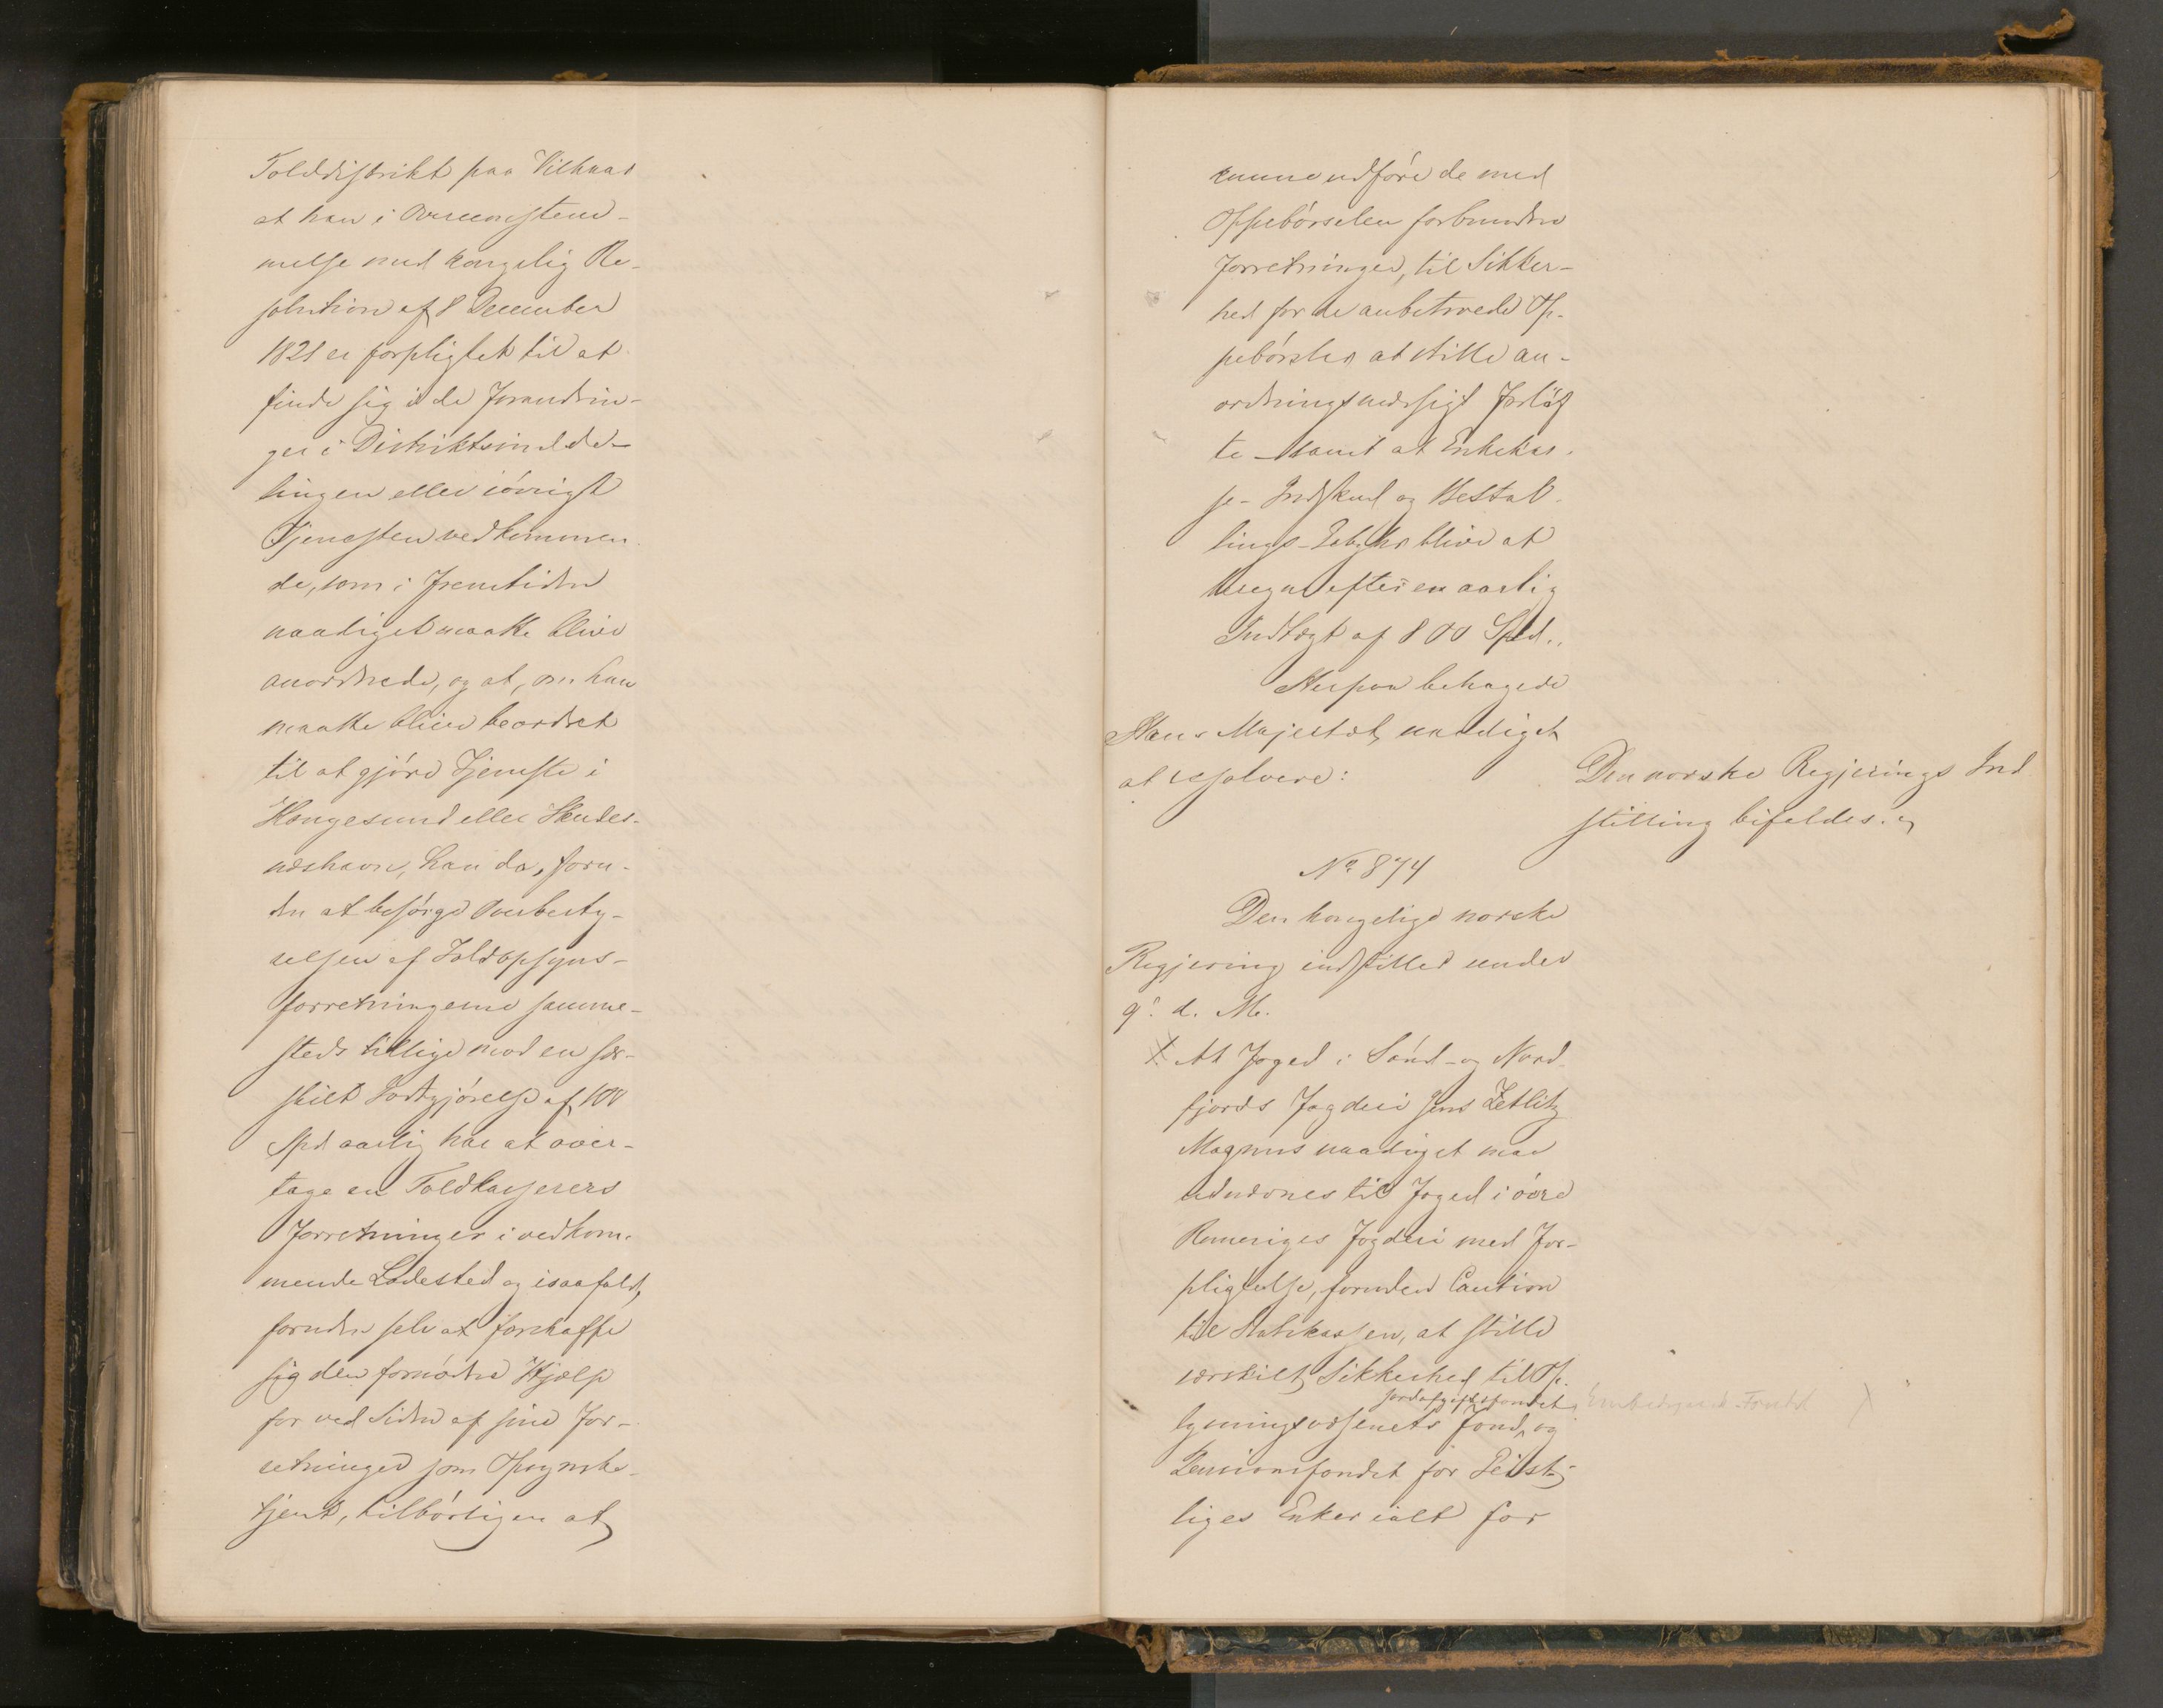 Tolddistrikt paa Vilkaar
at han i Overensstem-
melse med kongelig Re-
solution af 8 December
1821 er forpligtet til at
finde sig i de Forandrin-
ger i Distriktsindde-
lingen eller iøvrigt
Tjenesten vedkommen-
de, som i Fremtiden
naadigst maatte blive
anordnede, og at, om han
maatte blive beordret
til at gjøre Tjeneste i
Haugesund eller Skudes-
næshavn, han da, foru-
den at besørge Overbesty-
relsen af Toldopsyns-
forretningerne samme-
steds tillige mod en sær-
skilt Godtgjørelse af 100
Spd aarlig har at over-
tage en Toldkasserers
Forretninger i vedkom-
mende Ladested og isaafald,
foruden selv at forskaffe
sig den fornødne Hjælp
for ved Siden af sine For-
retninger som Opsynsbe-
tjent, tilbørligen at
kunne udføre de med
Oppebørselen forbundne
Forretninger, til Sikker-
hed for de anbetroede Op-
pebørsler at stille an-
ordningsmæssigt Forløf-
te - samt at Enkekas-
se-Indskud og Bestal-
lings-Gebyhr blive at
beregne efter en aarlig
Indtægt af 800 Spd.
Herpaa behagede
Hans Majestæt naadigst
at resolvere:
Den norske Regjerings Ind
stilling bifaldes.
No 874
Den kongelige norske
Regjering indstiller under
9. d. M.
1. At Foged i Sønd- og Nord-
fjords Fogderi Jens Zetlitz
Magnus naadigst maa
udnævnes til Foged i øvre
Romeriges Fogderi med For-
pligtelse, foruden Caution
til Statskassen, at stille
særskilt Sikkerhed til Op-
Jordafgiftsfondet, Embedsgaards-Fondet X
lysningsvæsenets Fond, og
Pensionsfondet for Geist-
liges Enker ialt for